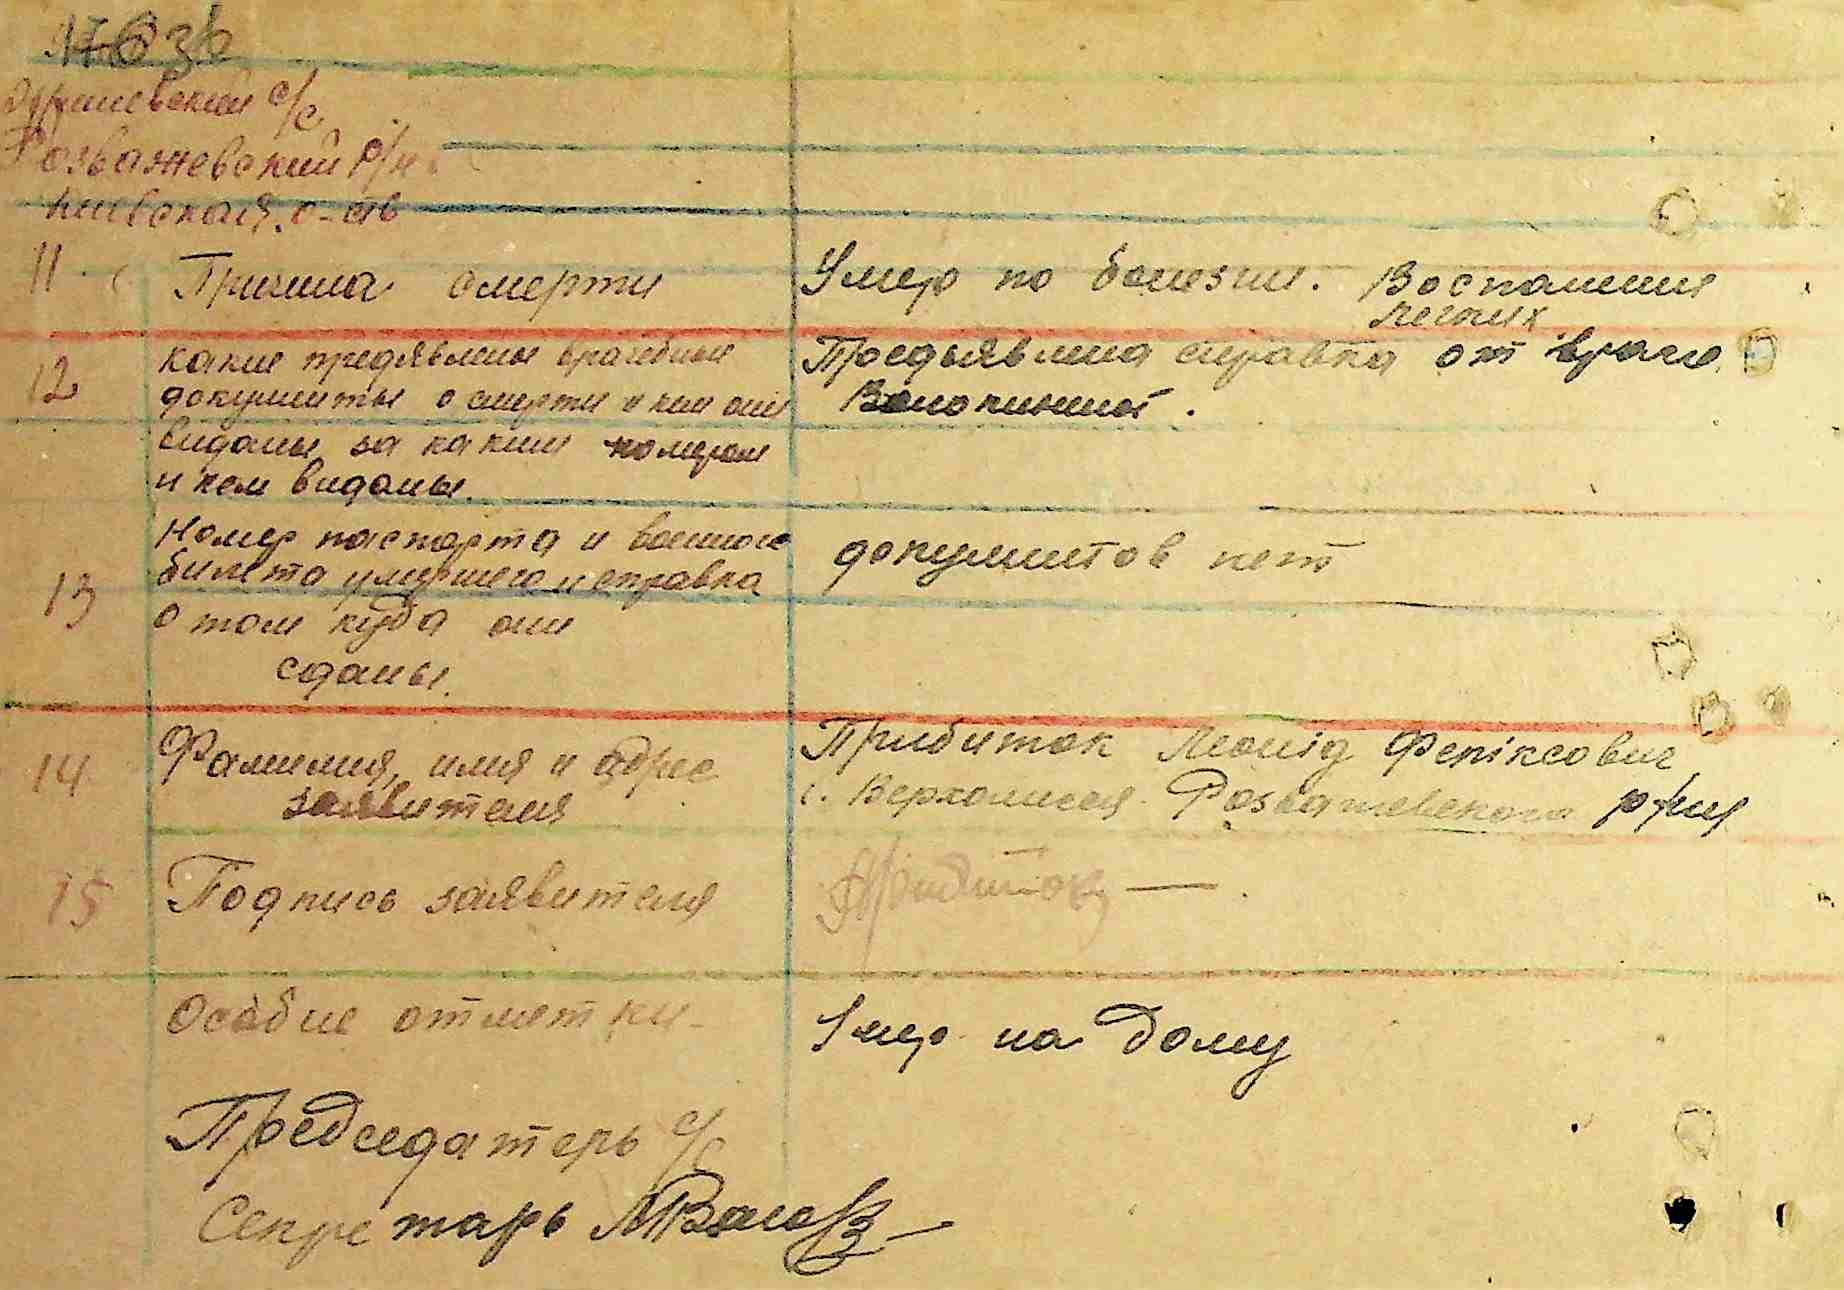 с/с
Розважевский р/н
Киевская о-ств
11 Причина смерти
Умер по болезни. Воспаления
легких
12
какие предявлены врачебные
документы о смерти и кем они
виданы за каким номером
и кем виданы.
Предьявлена справка от врача
13
Номер паспорта и военного
билета умершего и справка
о том куда они
сданы.
документов нет
14
Фамилия, имя и адрес
заявителя
Прибиток Леонід Феліксович
с. Розважевского р/на
15 Подпись заявителя
Прибиток
Особие отметки
Умер на дому
Председатель с/с
Секретарь